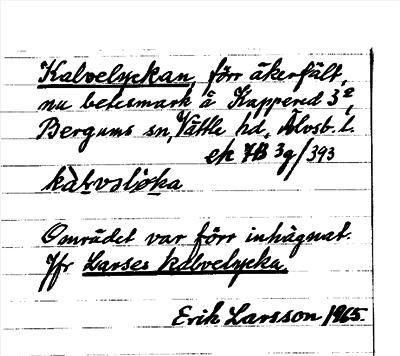 Kalvelyckan, förr åkerfält,
nu betesmark å Kapperud 3²,
Bergums sn, Vättle hd, Älvsb. l.
ek 7B 3g/393
Området var förr inhägnat.
Jfr Larses kalvelycka.
Erik Larsson 1965.